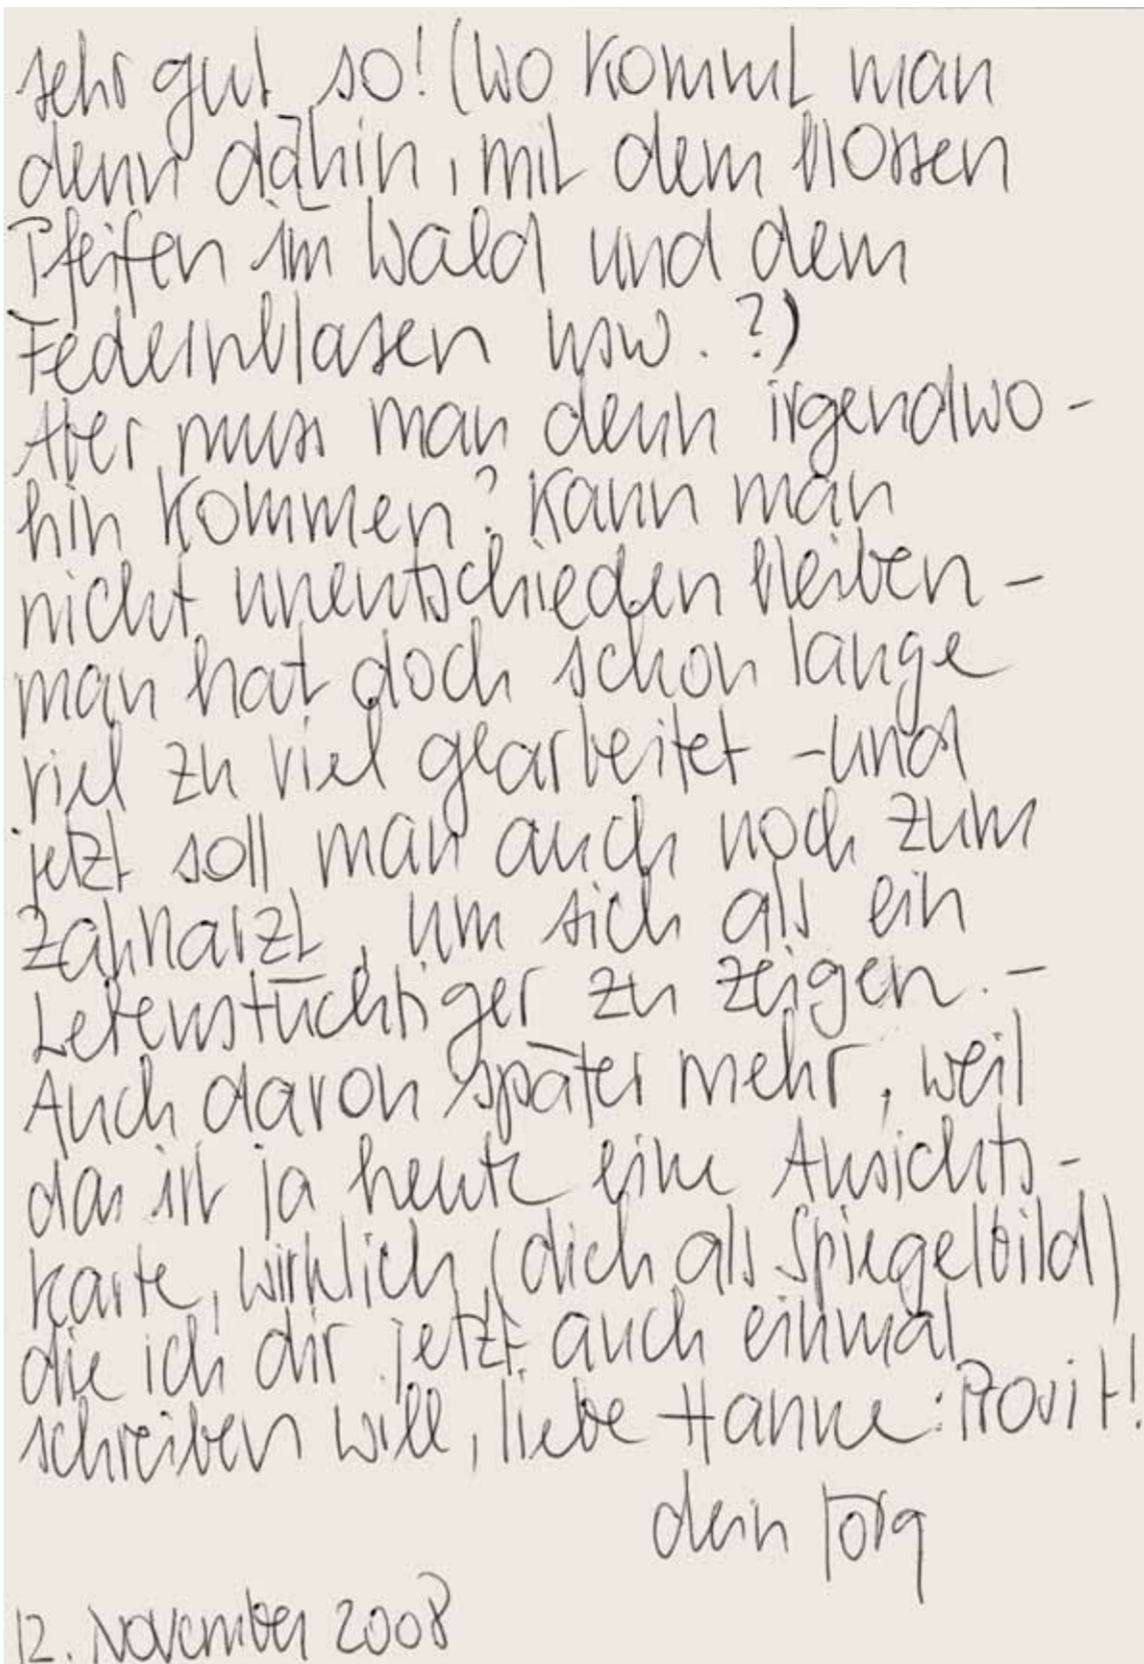 sehr gut so! (Wo kommt man
denn dahin, mit dem blossen
Pfeifen im Wald und dem
Federnblasen usw. ?)
Aber muss man denn irgendwo-
hin kommen? Kann man
nicht unentschieden bleiben –
man hat doch schon lange
viel zu viel gearbeitet – und
jetzt soll man auch noch zum
Zahnarzt, um sich als ein
Lebenstüchtiger zu zeigen. –
Auch davon später mehr, weil
das ist ja heute eine Ansichts-
karte, wirklich (dich als Spiegelbild)
die ich dir jetzt auch einmal
schreiben will, liebe Hanne: Prosit!
dein Jörg
12. November 2008